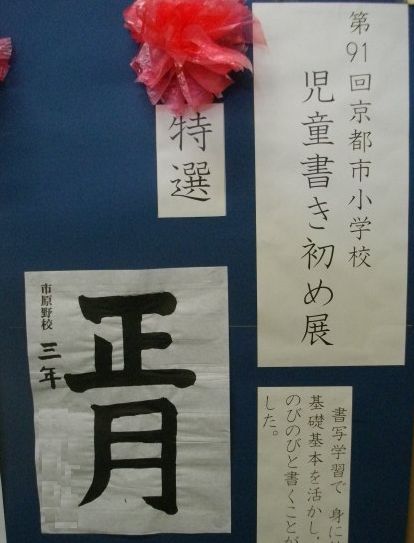 第91回京都市小学校
児童書き初め展
特選
正月
市原野校
三年
書写学習で身に
基礎基本を活かし、
のびのびと書くことが
した。